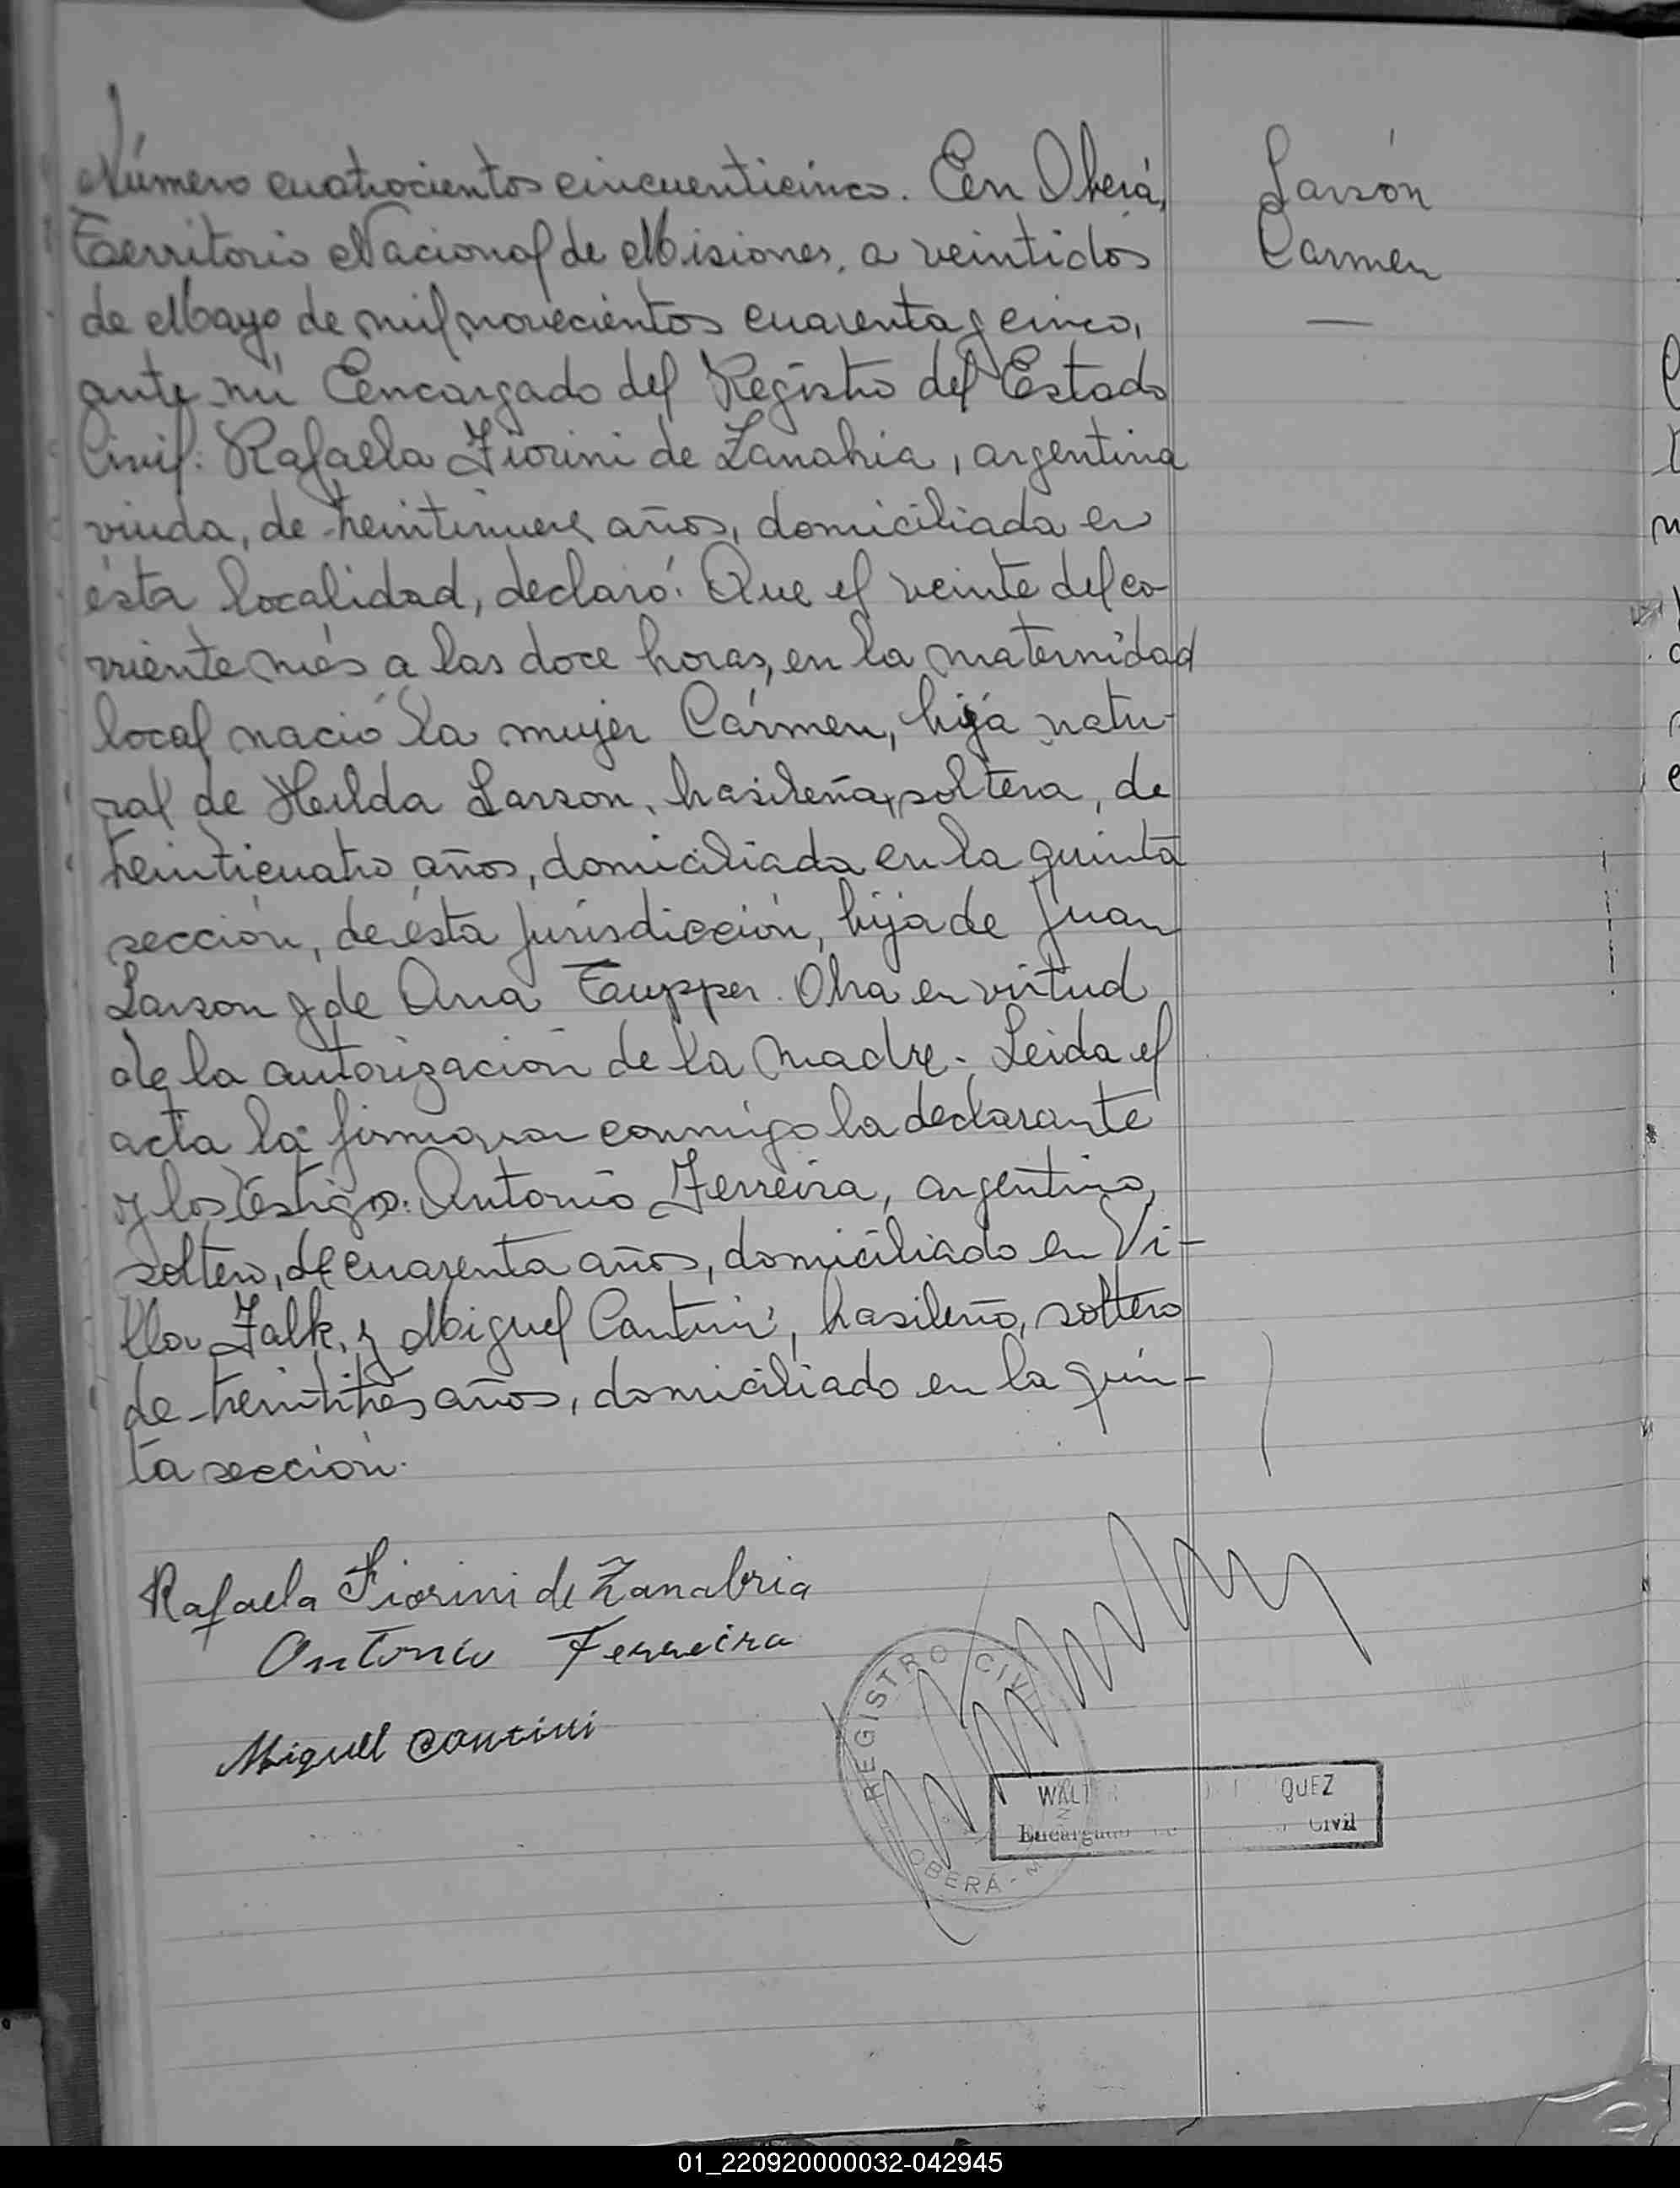 Número cuatrocientos cincuenticinco. En Oberá,
Territorio Nacional de Misiones, a veintidós
de Mayo de mil novecientos cuarenta y cinco,
ante mí Encargado del Registro del Estado
Civil: Rafaela Fiorini de Zanabria, argentina
viuda, de treintinueve años, domiciliada en
ésta localidad, declaró: Que el veinte del co-
rriente més a las doce horas, en la maternidad
local nació la mujer Cármen, hija natu-
ral de Hilda Larson, brasileña, soltera, de
treinticuatro años, domiciliada en la quinta
sección, de ésta jurisdicción, hija de Juan
Larson y de Ana Tupper. Obra en virtud
de la autorización de la madre. Leida el
acta la firmaron conmigo la declarante
y los téstigos: Antonio Ferreira, argentino,
soltero, de cuarenta años, domiciliado en Vi-
lla Falk, y Miguel Cantini, brasileño, soltero
de treintitrés años, domiciliado en la quin-
ta sección.
Larsón
Carmen
Rafaela Fiorini de Zanabria
Antonio Ferreira
Miguel Cantini
REGISTRO CIVIL
OBERÁ - M
WALT QUEZ
Encargado Civil
01_220920000032-042945